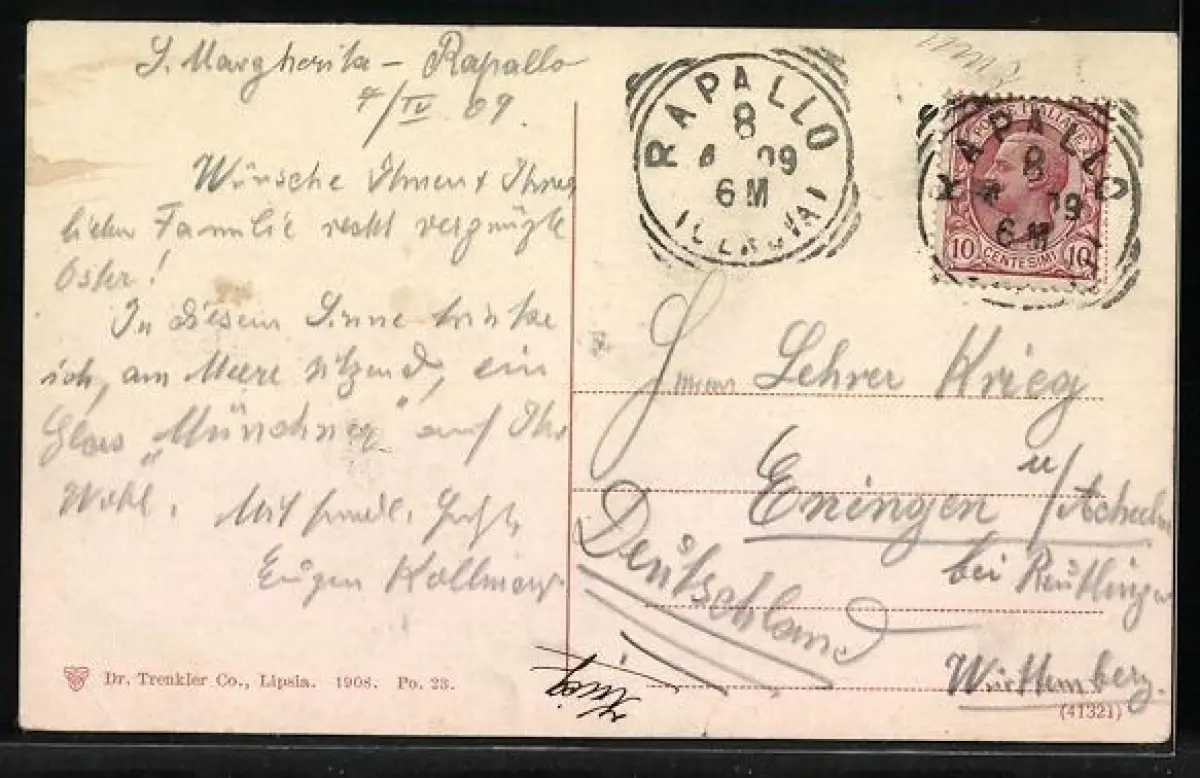 S. Margherita – Rapallo
7/IV 09.
Wünsche Ihnen + Ihrer
lieben Familie recht vergnügte
Oster!
In diesem Sinne trinke
ich, am Meere sitzend, ein
Glas „Münchner" auf Ihr
Wohl. Mit freundl. Gruß,
Eugen
Dr. Trenkler Co., Lipsia. 1908. Po. 23.
RAPALLO
8
09
6M
POSTE ITALIANE
RAPALLO
8
09
6M
10 CENTESIMI 10
Lehrer Krieg
Eningen u/Achalm
bei Reutlingen
Württemberg.
Deutschland
(41321)